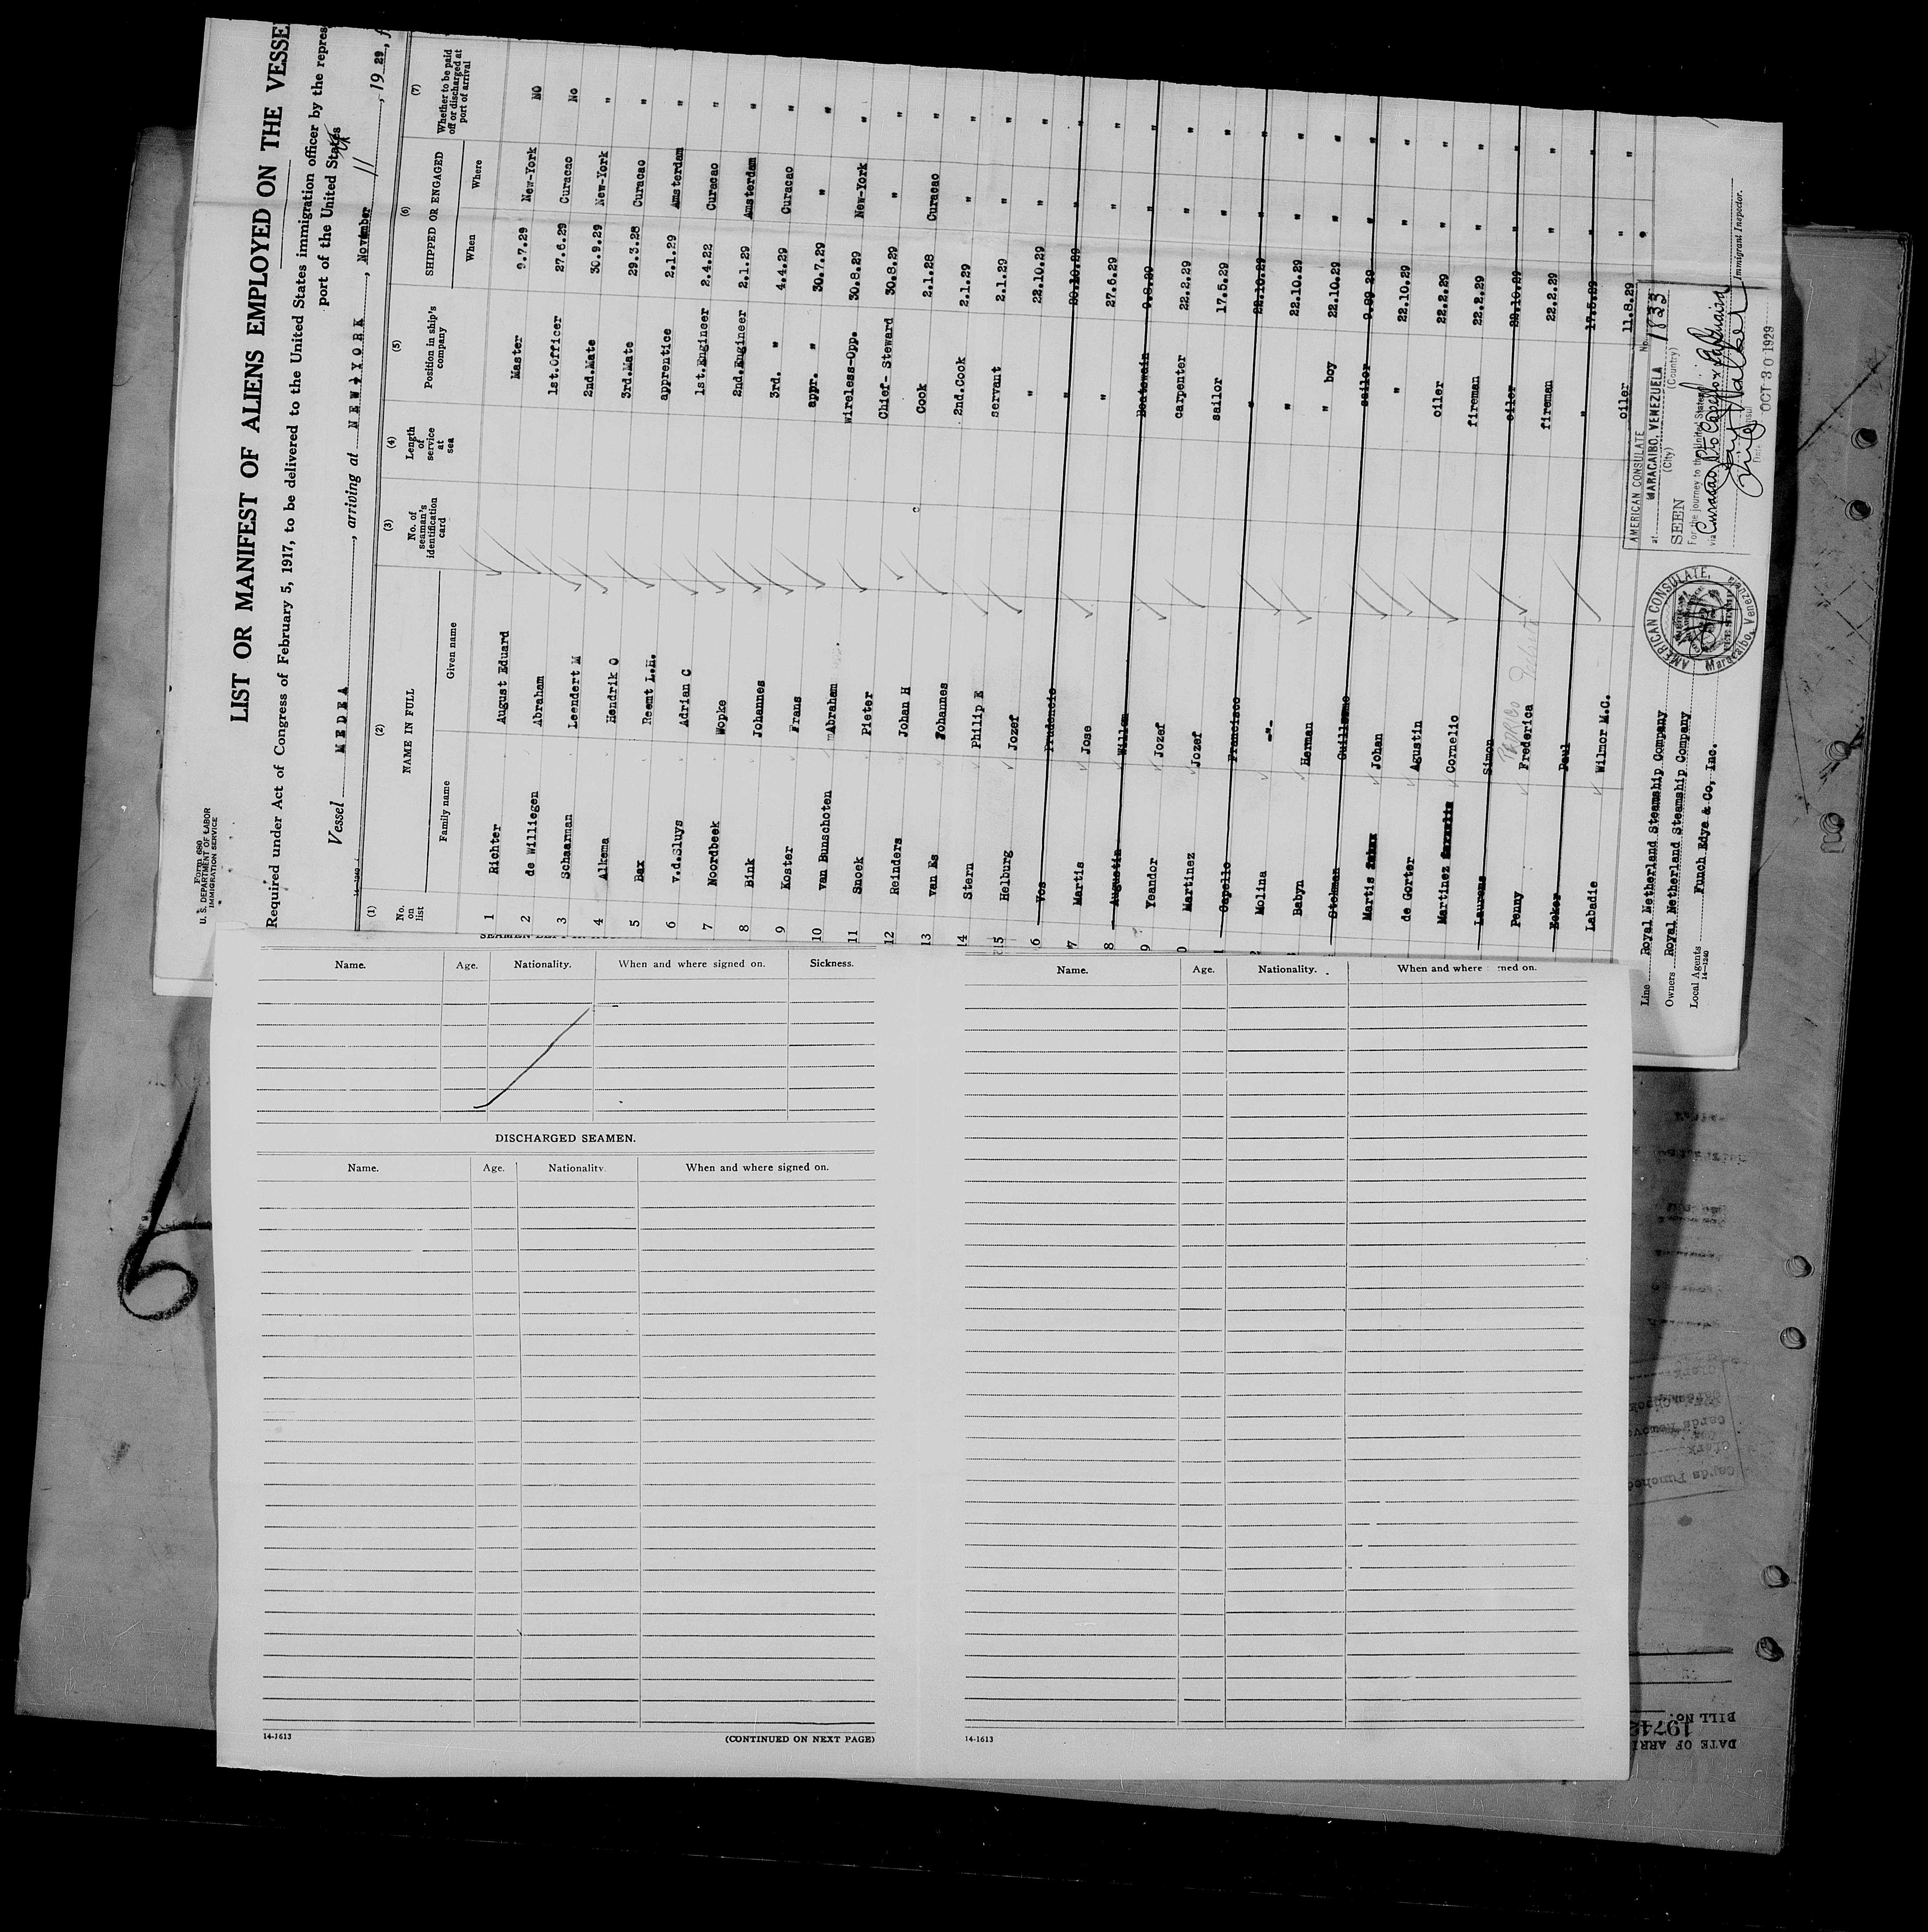 Form 680
U. S. DEPARTMENT OF LABOR
IMMIGRATION SERVICE
LIST OR MANIFEST OF ALIENS EMPLOYED ON THE VESSE
Required under Act of Congress of February 5, 1917, to be delivered to the United States immigration officer by the repres
port of the United States
Vessel MEDEA, arriving at NEW-YORK, November 11, 1929, f
(1) (2) (3) (4) (5) (6) (7)
No. on list NAME IN FULL No. of seaman's identification card Length of service at sea Position in ship's company SHIPPED OR ENGAGED Whether to be paid off or discharged at port of arrival
Family name Given name When Where
1 Richter August Eduard Master 9.7.29 New-York NO
2 de Williegen Abraham 1st.Officer 27.6.29 Curacao No
3 Schaarman Leendert M 2nd.Mate 30.9.29 New-York "
4 Alkema Hendrik O 3rd.Mate 29.3.28 Curacao "
5 Bax Reemt L.H. apprentice 2.1.29 Amsterdam "
6 v.d.Sluys Adrian C 1st.Engineer 2.4.22 Curacao "
7 Noordbeek Wopke 2nd.Engineer 2.1.29 Amsterdam "
8 Bink Johannes 3rd. " 4.4.29 Curacao "
9 Koster Frans appr. " 30.7.29 " "
10 van Bunschoten Abraham Wireless-Opp. 30.8.29 New-York "
11 Snoek Pieter Chief-Steward 30.8.29 " "
12 Reinders Johan H Cook 2.1.28 Curacao "
13 van Es Johannes 2nd.Cook 2.1.29 " "
14 Stern Philip E servant 2.1.29 " "
15 Helburg Jozef " 22.10.29 " "
6 Vos Prudencio " 20.10.29 " "
7 Martis Jose " 27.6.29 " "
8 Augustin Willem Boatswain 9.8.29 " "
9 Yeandor Jozef carpenter 22.2.29 " "
0 Martinez Jozef sailor 17.5.29 " "
1 Capello Francisco " 22.10.29 " "
2 Molina -"- " 22.10.29 " "
Babyn Herman " boy 22.10.29 " "
Stekman Guillermo sailor " "
Martis Johan " 22.10.29 " "
de Gorter Agustin oiler 22.2.29 " "
Martinez Cornelio fireman 22.2.29 " "
Laurens Simon oiler 22.10.29 " "
Penny Frederica fireman 22.2.29 " "
Ecker Paul " 17.5.29 " "
Labadie Wilmor M.C. oiler 11.8.29 " "
Line Royal Netherland Steamship Company
Owners Royal Netherland Steamship Company
Local Agents Funch Edye & Co, Inc.
14-1240
AMERICAN CONSULATE, Maracaibo, Venezuela
AMERICAN CONSULATE No. 1833
at MARACAIBO, VENEZUELA
(City) (Country)
SEEN
For the journey to the United States
via Curacao
OCT 30 1929
Immigrant Inspector.
Name. Age. Nationality. When and where signed on. Sickness.
DISCHARGED SEAMEN.
Name. Age. Nationality. When and where signed on.
14-1613
(CONTINUED ON NEXT PAGE)
Name. Age. Nationality. When and where ned on.
14-1613
5
BILL NO.
DATE OF ARRI